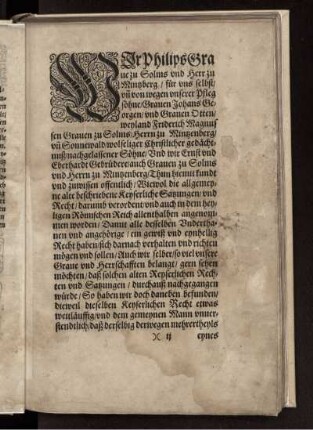 WJr Philips Gra
ue zu Solms vnd Herr zu
Mintzberg / für vns selbst/
vñ von wegen vnserer Pfleg
söhne/Grauen Johans Ge-
orgen/ vnd Grauen Otten/
weyland Friderich Magnus-
sen Grauen zu Solms Herrn zu Mintzenberg/
vñ Sonnewald wolseliger Christlicher gedächt-
nuß nachgelassener Söhne/ Vnd wir Ernst vnd
Eberhardt Gebrüdere auch Grauen zu Solms
vnd Herrn zu Mintzenberg/ Thun hiemit kundt
vnd zuwissen offentlich/ Wiewol die allgemey-
ne alte beschriebene Keyserliche Satzungen/ vnd
Recht/ darumb verordent vnd auch in dem hey-
ligen Römischen Reich allenthalben angenom-
men worden/ Damit alle desselben Vndertha-
nen vnd angehörige/ ein gewiß vnd eynhellig
Recht haben sich darnach verhalten vnd richten
mögen vnd sollen/ Auch wir selber/ so viel vnsere
Graue vnd Herrschafften belangt/ gern sehen
möchten/ daß solchen alten Keyserlichen Rech-
ten vnd Satzungen/ durchauß nachgegangen
würde/ So haben wir doch daneben befunden/
dieweil dieselben Keyserlichen Recht etwas
weitläuffig/ vnd dem gemeynen Mann vnuer-
stendtlich/ daß derselbig derwegen mehrertheyls
)( ij eynes